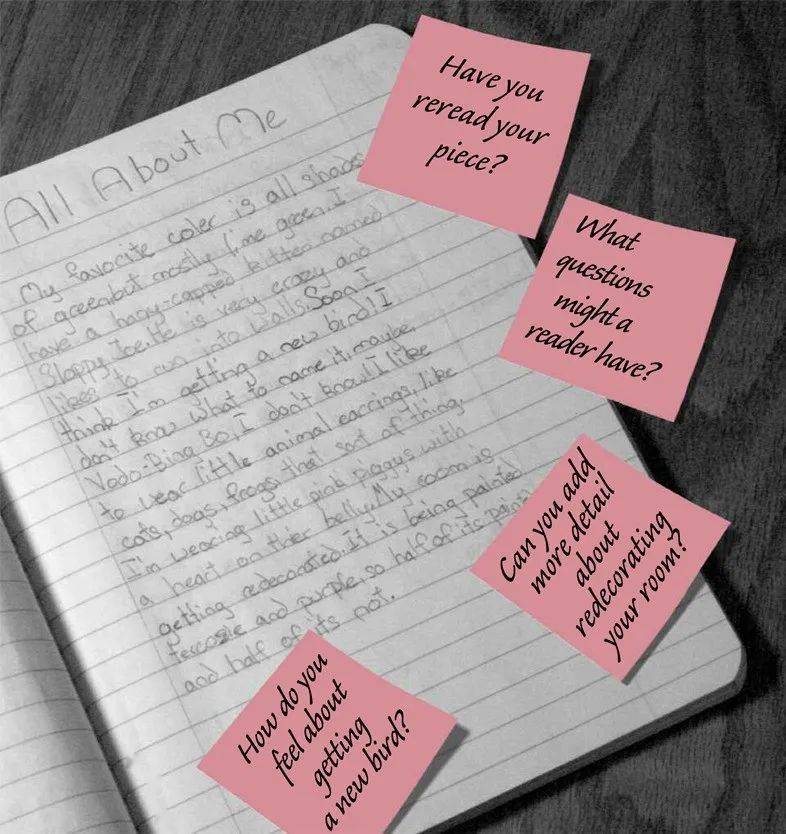 All About Me
My favorite coler is all shades
of green but mostly lime green. I
have a hapy-capped kitten named
Sloppy Joe. He is very crazy and
likes to run into walls. Soon I
think I'm getting a new bird! I
don't know what to name it, maybe,
Bo, I don't know! I like
to wear little animal earrings, like
cats, dogs, frogs that sort of thing.
I'm wearing little pink piggys with
a heart on thier belly. My room is
getting redecorated. It is being painted
tercosie and purple, so half of its paint
and half of its not.
Have you
reread your
piece?
What
questions
might a
reader have?
Can you add
more detail
about
redecorating
your room?
How do you
feel about
getting
a new bird?